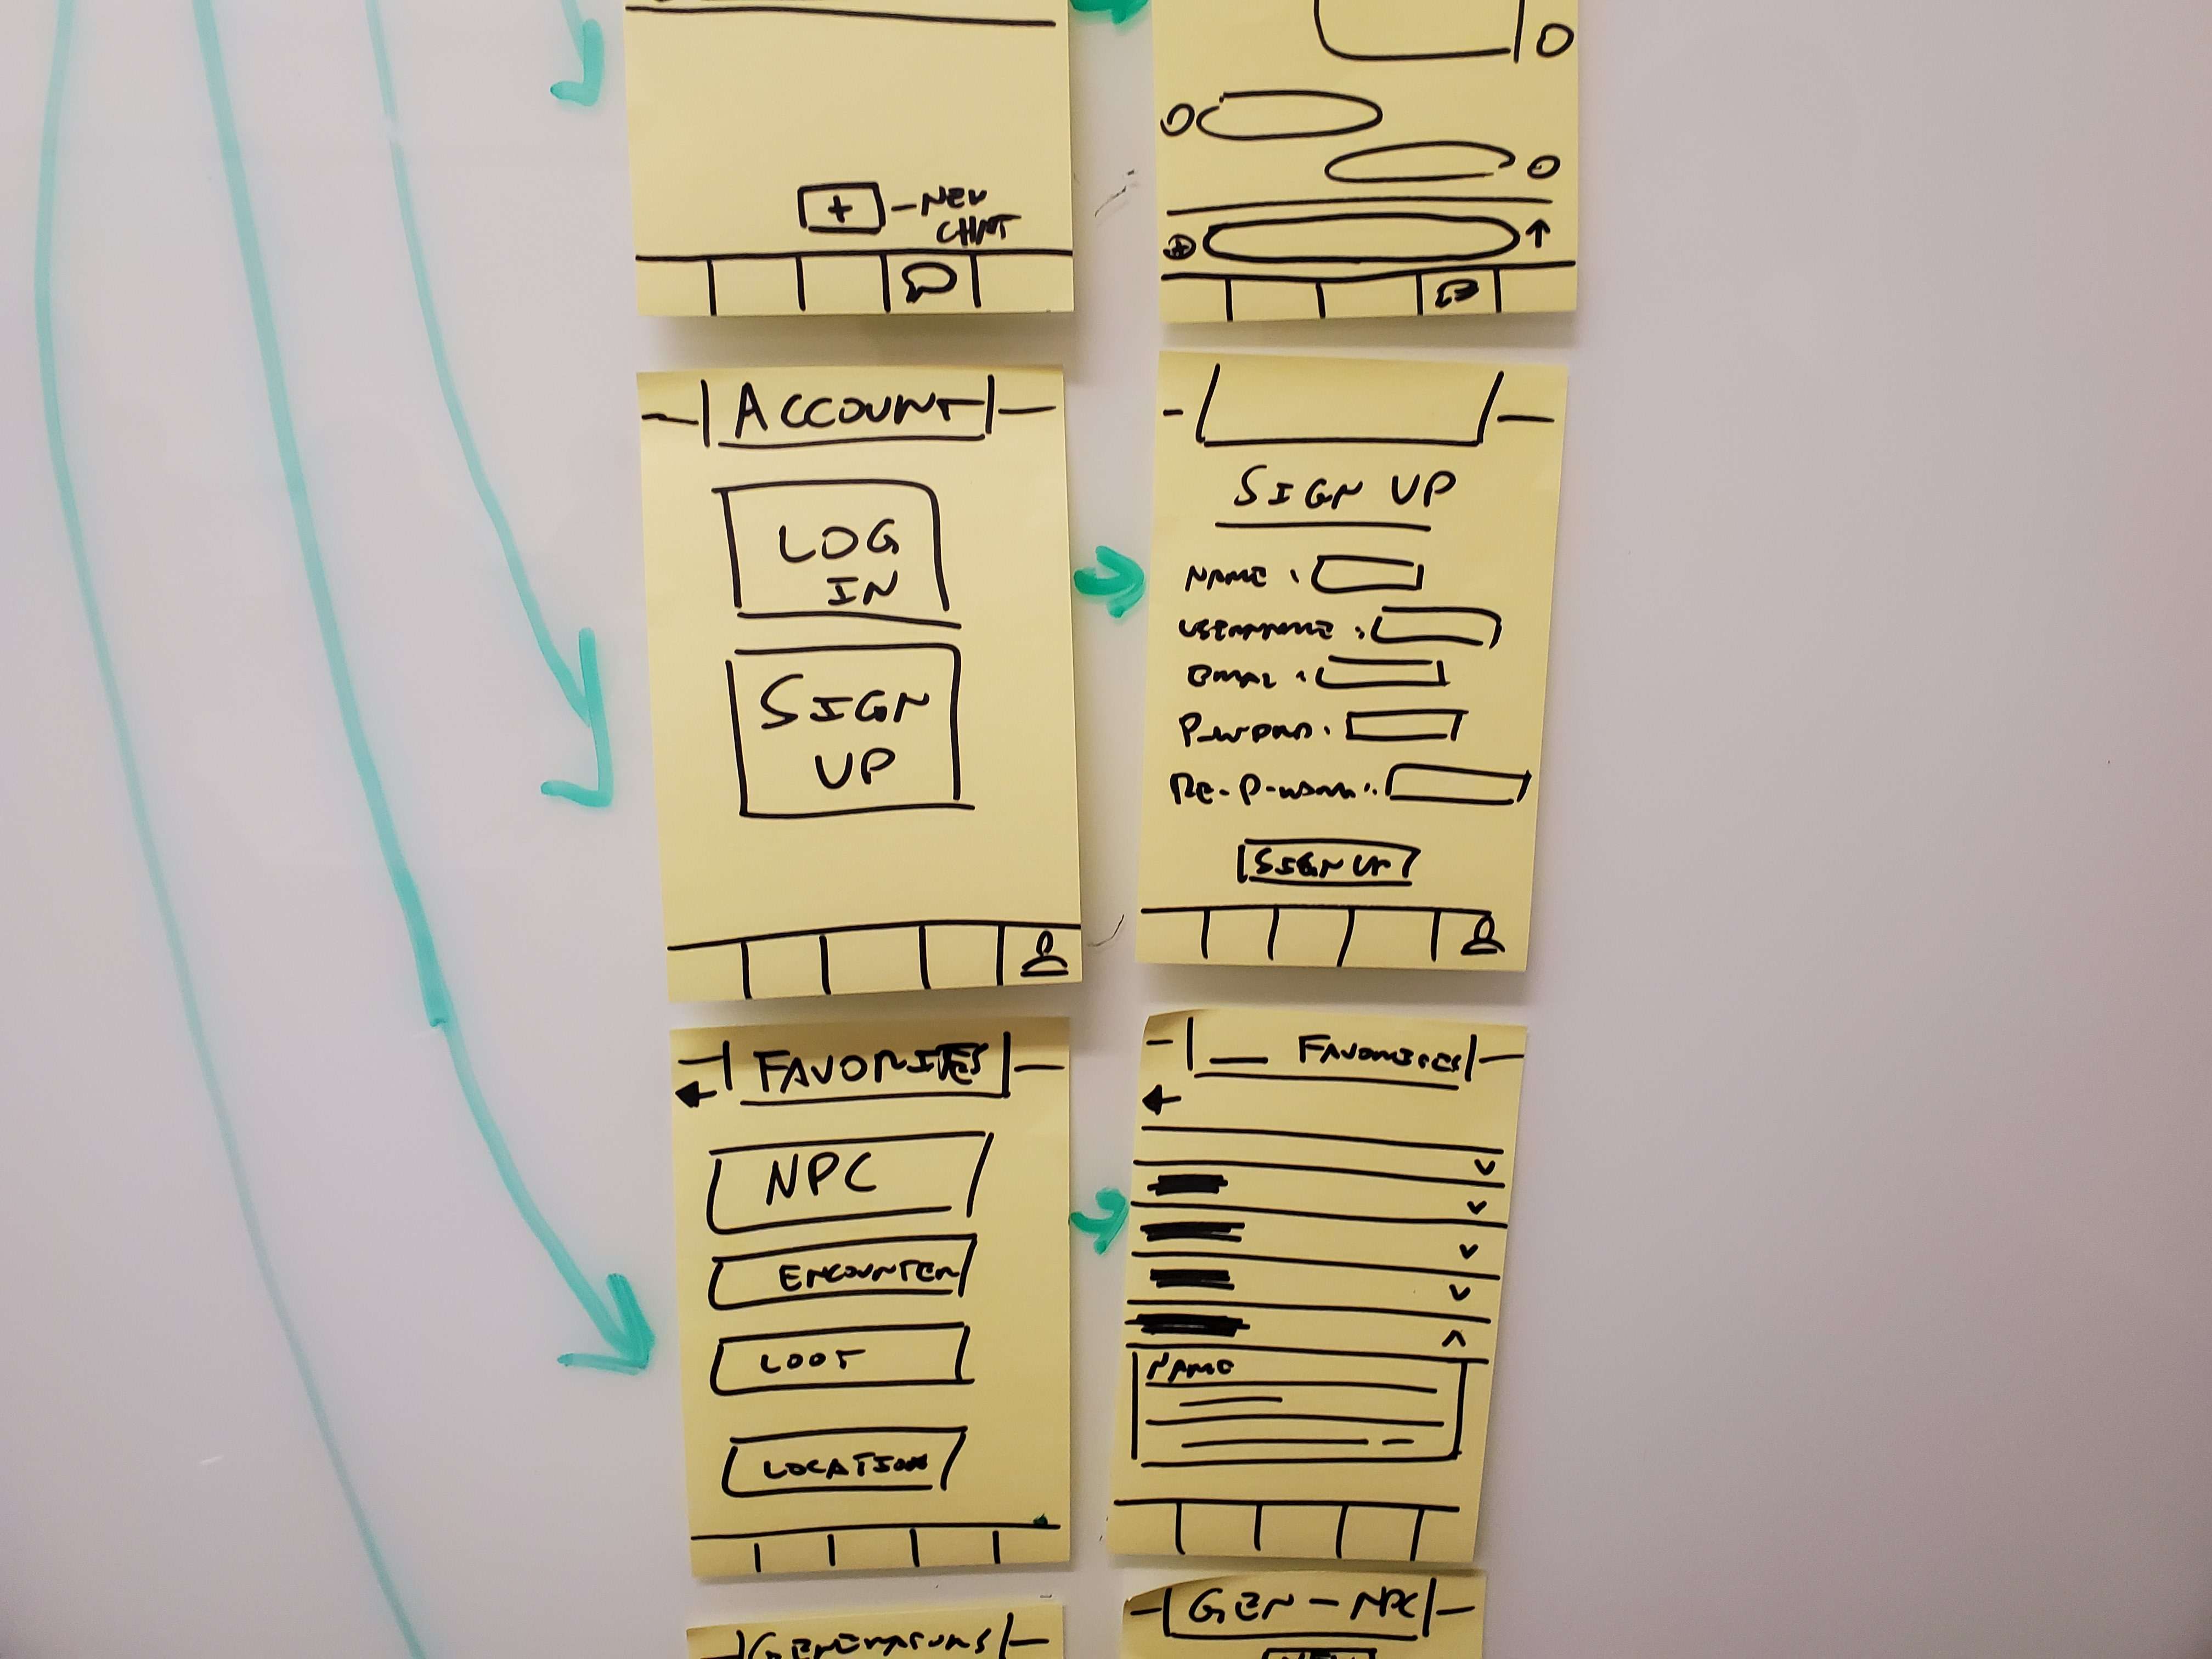 + - NEW
CHAT
ACCOUNT
LOG
IN
SIGN
UP
SIGN UP
NAME :
USERNAME :
EMAIL :
P-WORD :
RE-P-WORD :
SIGN UP
FAVORITES
NPC
ENCOUNTER
LOOT
LOCATION
___ FAVORITES
NAME
GENERATORS
GEN - NPC
NEW